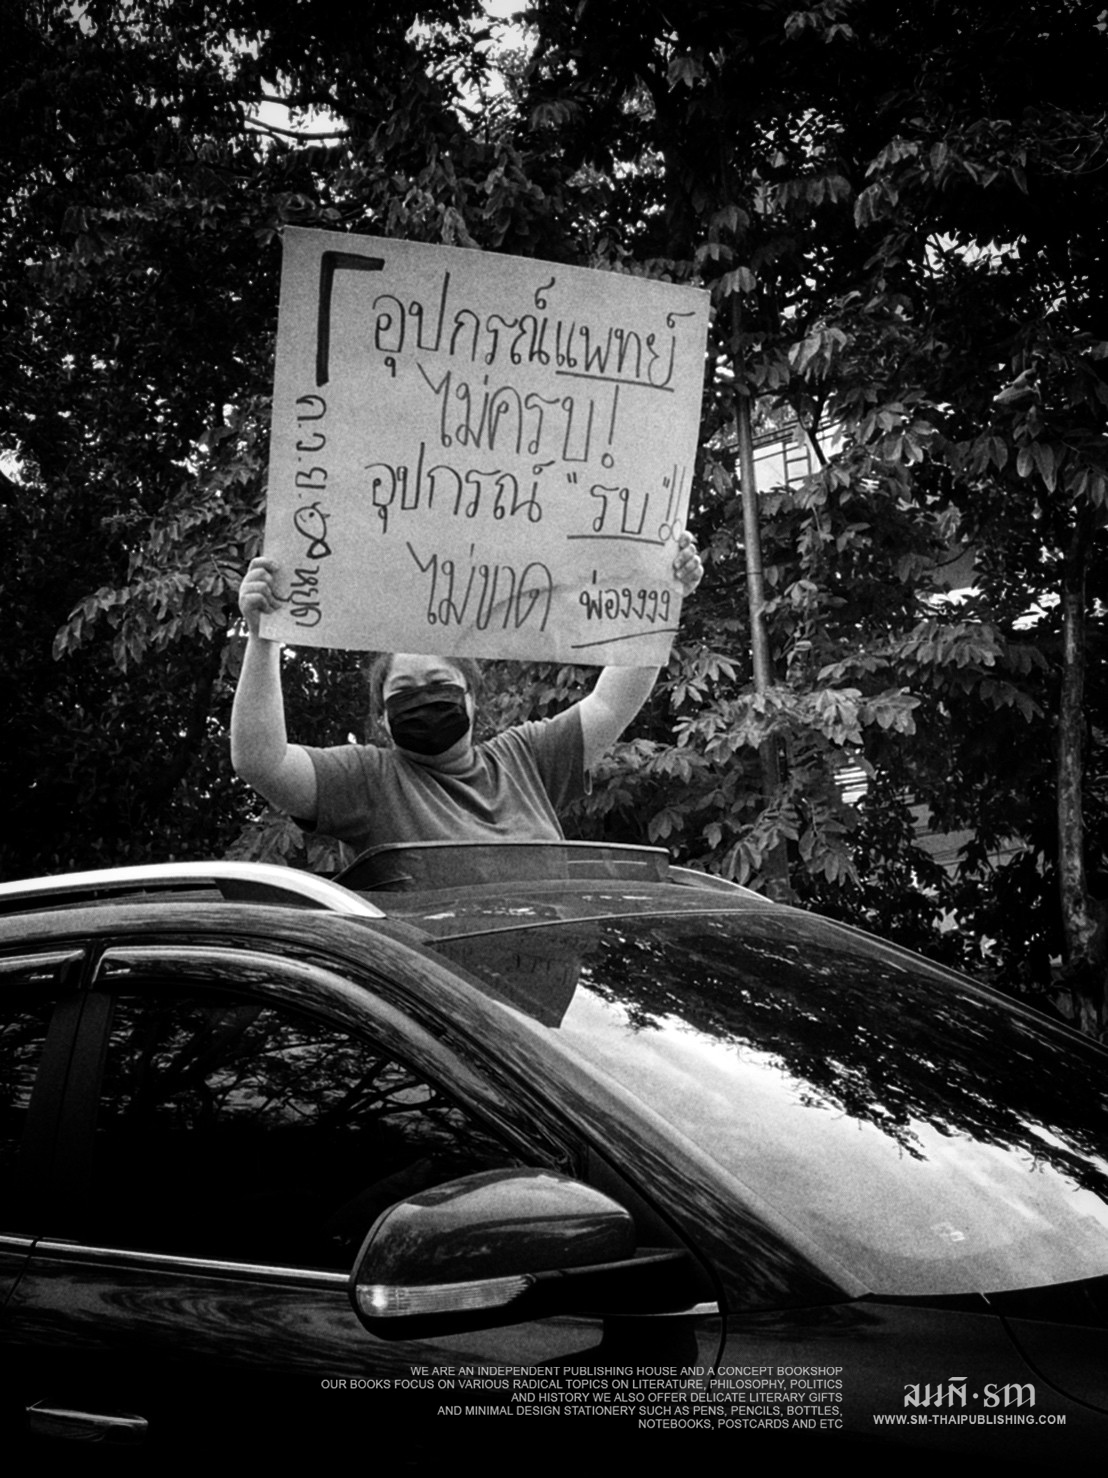 อุปกรณ์แพทย์
ไม่ครบ!
อุปกรณ์ "รบ"!!
ไม่ขาด พ่องงงง
WE ARE AN INDEPENDENT PUBLISHING HOUSE AND A CONCEPT BOOKSHOP
OUR BOOKS FOCUS ON VARIOUS RADICAL TOPICS ON LITERATURE, PHILOSOPHY, POLITICS
AND HISTORY WE ALSO OFFER DELICATE LITERARY GIFTS
AND MINIMAL DESIGN STATIONERY SUCH AS PENS, PENCILS, BOTTLES,
NOTEBOOKS, POSTCARDS AND ETC
สมมติ·sm
WWW.SM-THAIPUBLISHING.COM